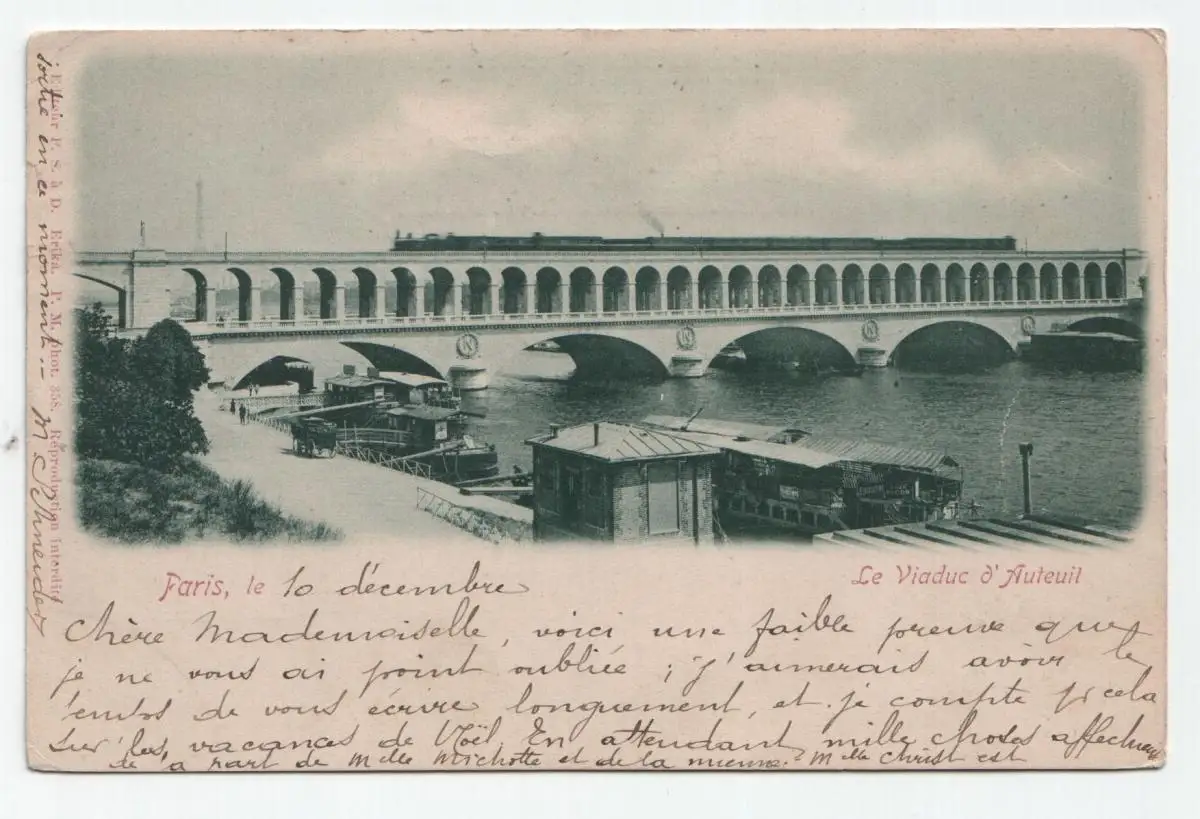 Paris, le 10 décembre
Le Viaduc d'Auteuil
Chère Mademoiselle, voici une faible preuve que
je ne vous ai point oubliée ; j'aimerais avoir le
temps de vous écrire longuement, et je compte pr cela
sur les vacances de Noël. En attendant mille choses affectueu
de la part de Mlle Michotte et de la mienne. Mlle Christ est
sortie en ce moment. M Schneider
P. S. à D. Erika. P. M. phot. 358. Reproduction interdite
N
N